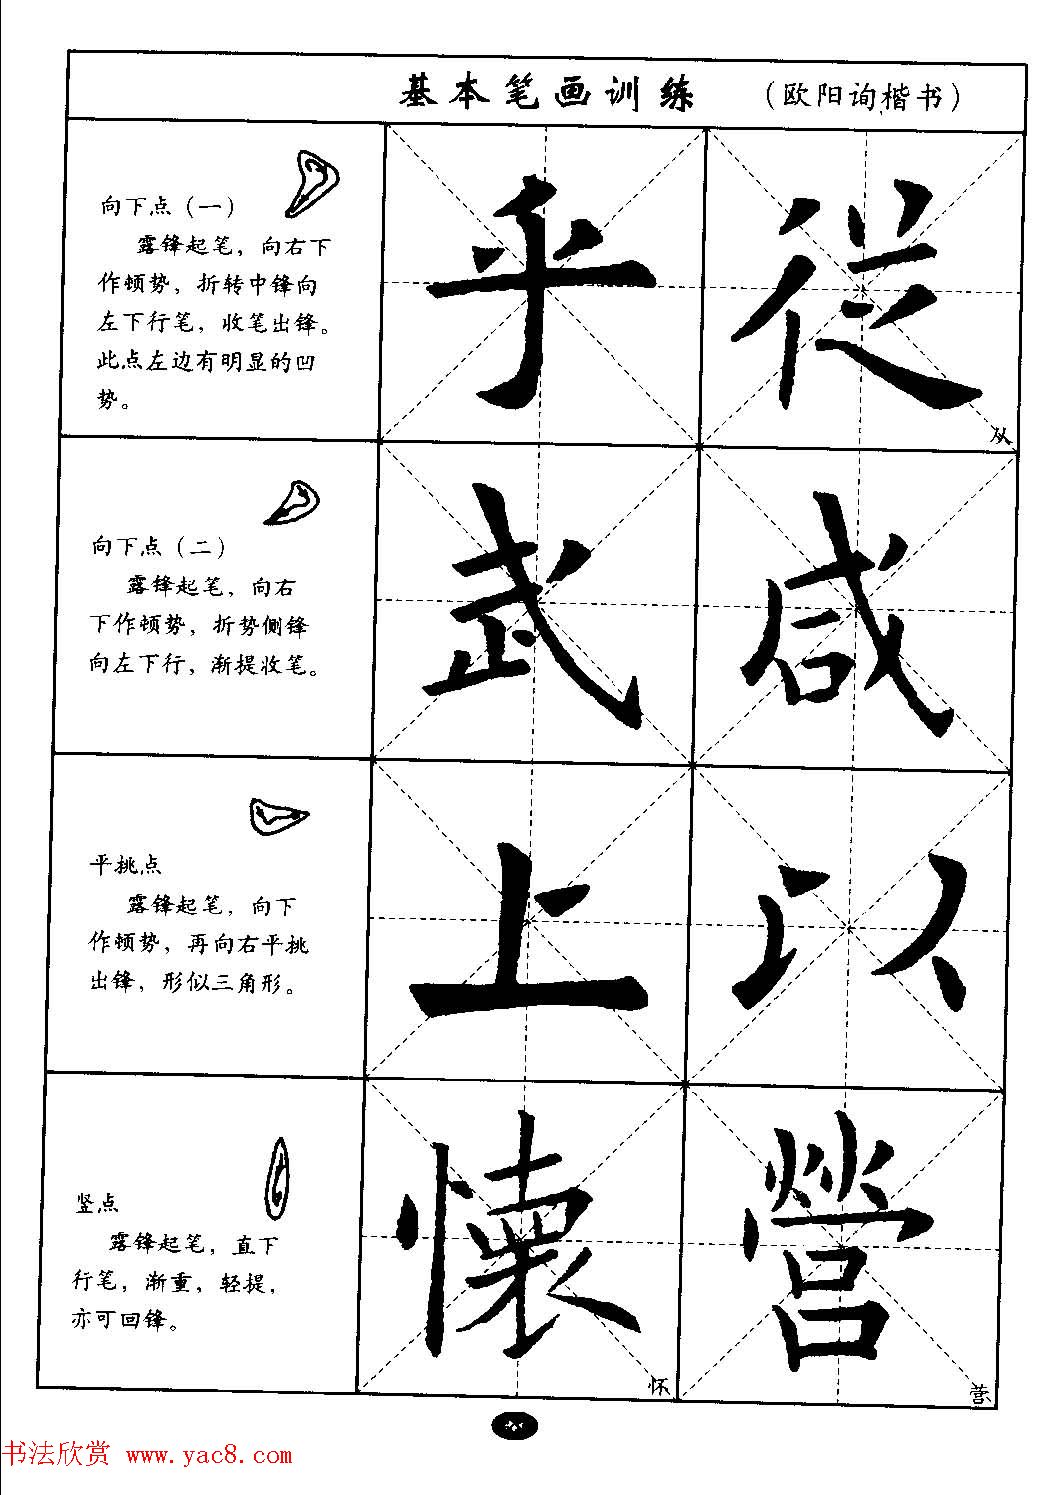 基本笔画训练 （欧阳询楷书）
向下点（一）
露锋起笔，向右下
作顿势，折转中锋向
左下行笔，收笔出锋。
此点左边有明显的凹
势。
乎 從
从
向下点（二）
露锋起笔，向右
下作顿势，折势侧锋
向左下行，渐提收笔。
武 咸
平挑点
露锋起笔，向下
作顿势，再向右平挑
出锋，形似三角形。
上 以
竖点
露锋起笔，直下
行笔，渐重，轻提，
亦可回锋。
懷 營
怀 营
书法欣赏 www.yac8.com